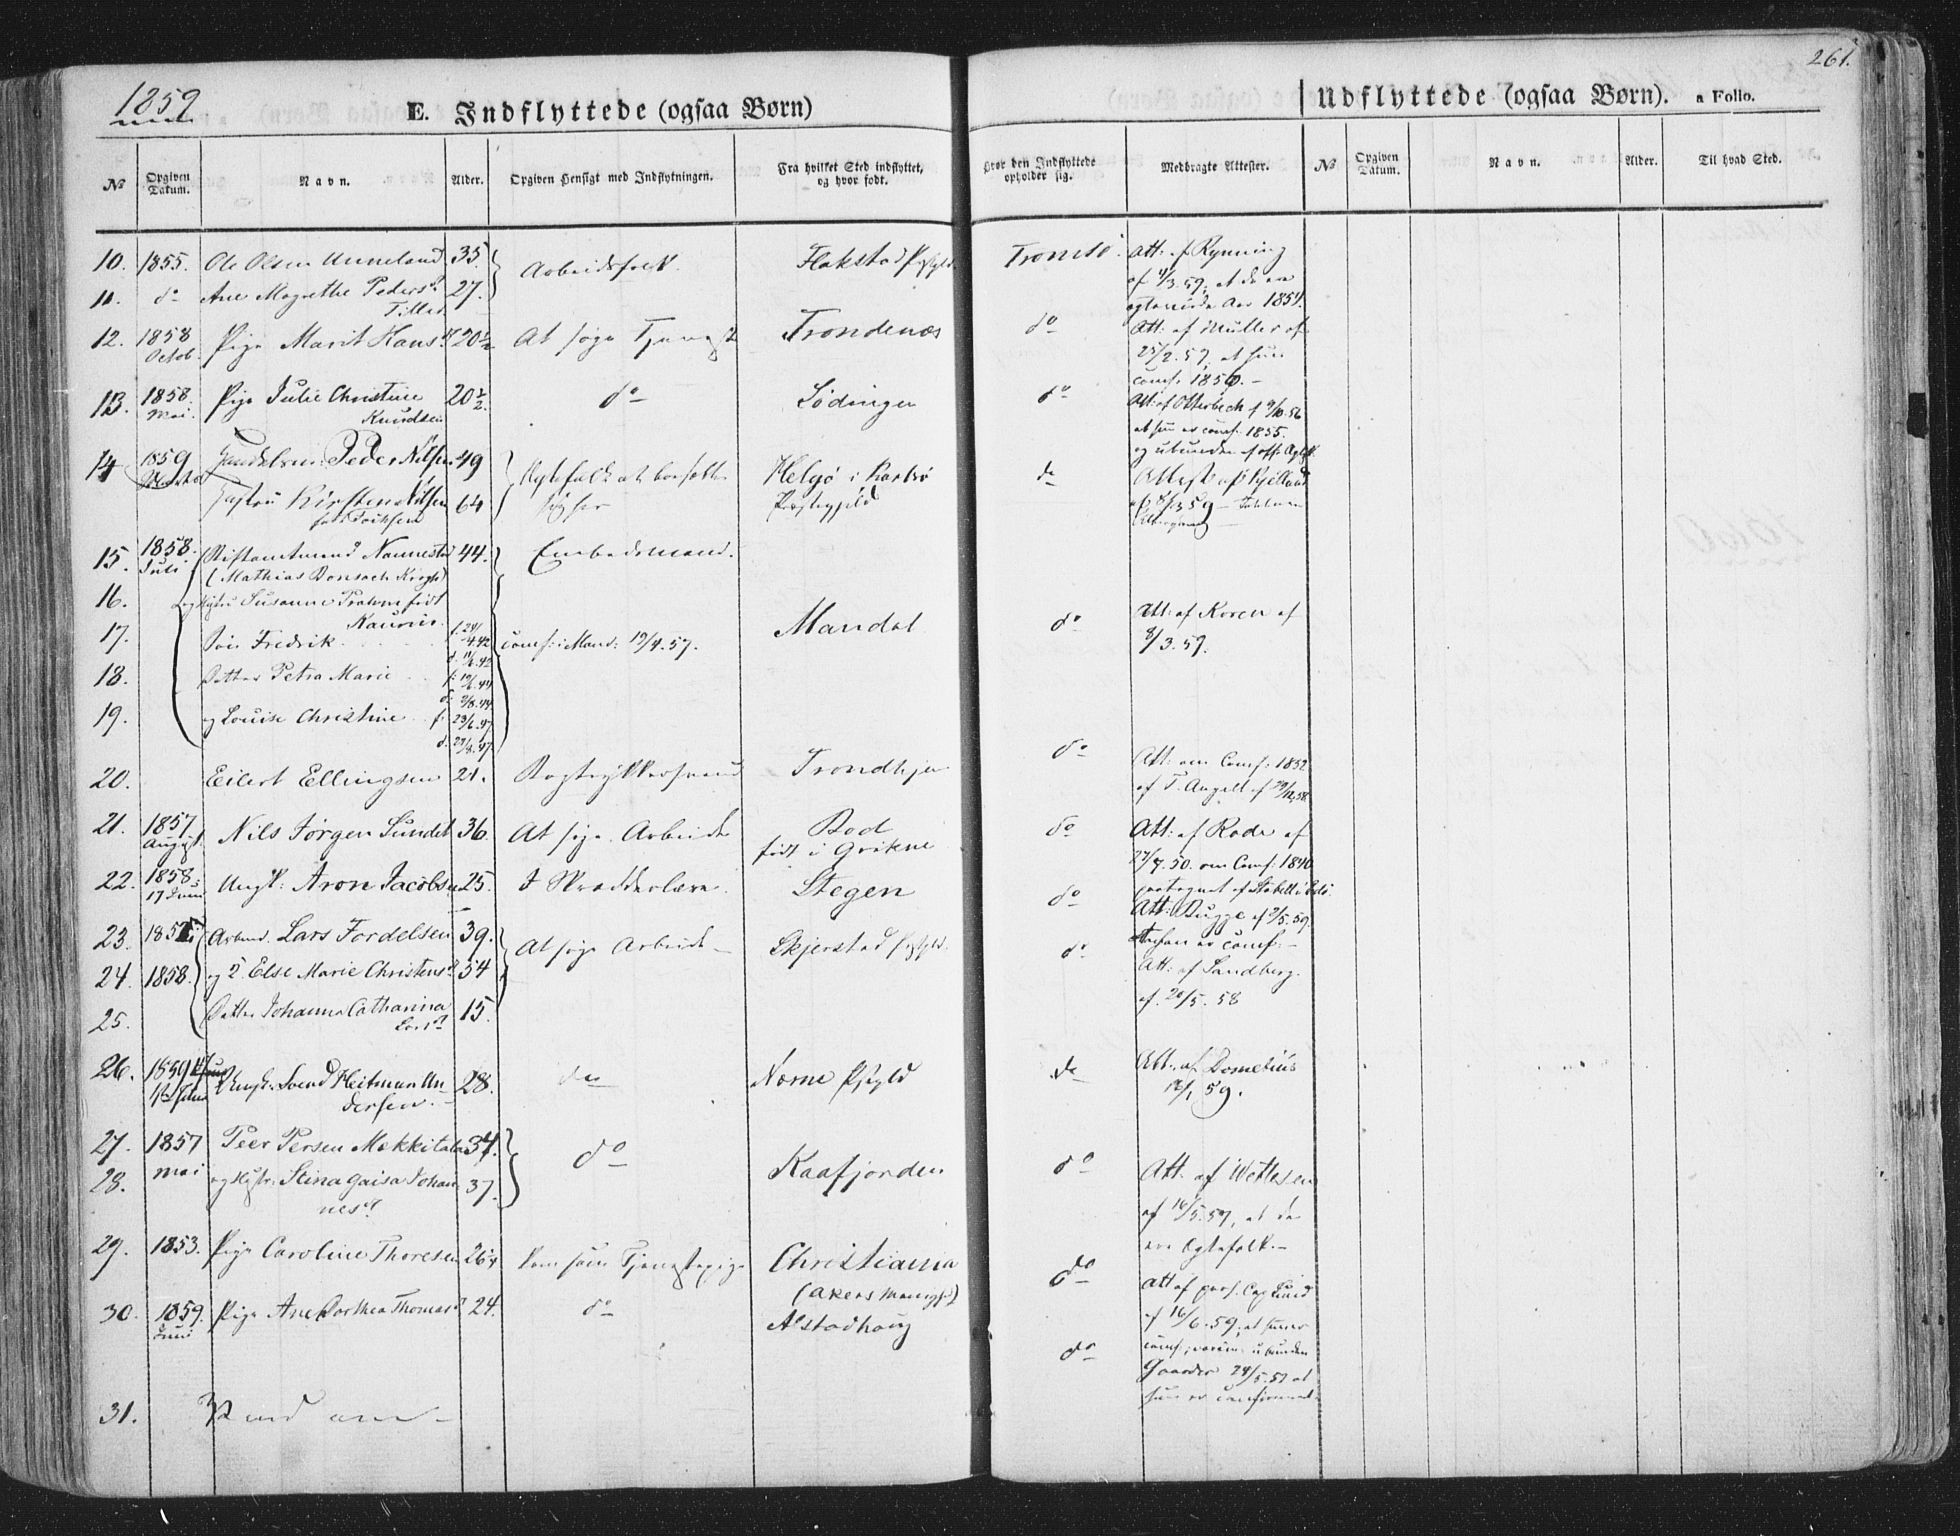 1859
E. Indflyttede (ogsaa Børn)
Udflyttede (ogsaa Børn). a Folio.
261.
No
Opgiven Datum.
Navn.
Alder.
Opgiven Hensigt med Indflytningen.
Fra hvilket Sted indflyttet, og hvor født.
Hvor den Indflyttede opholder sig.
Medbragte Attester.
No
Opgiven Datum.
Navn.
Alder.
Til hvad Sted.
10. 1855. Ole Olsen Unneland 35. Arbeidsfolk. Flakstad Pgjld. Tromsø. Att: af Rynning
af 11/3.59, at de ere
11. do Ane Magrethe Peders 27.
Tiller
ægteviede Aar 1854.
12. 1858 Pige Marit Hans 20½ At søge Tjeneste Trondenæs do Att: af Müller af
Octob. 25/2.59, at hun
conf. 1856.
13. 1858. Pige Julie Christine 20½ do Lødingen do Att: af Otterbech af 9/10.56
Mai. Knudsen
at hun er conf. 1855.
og ubunden af Ægtsk.
14 1859 Peder Nilsen 49 Ægtefolk at bosætte Helgø i Karlsø do Attest af Kjelland
Kirsten Nilsen 64 sig her Præstegjeld
15. 1858. Stiftamtmand Nannestad 44. Embedsmand.
Juli (Mathias Bonsach Krogh)
16. og Hustru Susanne Prahm født
Kaurin.
17. Søn Fredrik f. 24/4.42 conf: i Mand: 19/4.57. Mandal do Att: af Koren af
d. 11/6.42 8/3.59.
18. Datter Petra Marie f: 19/6.44
d: 2/8.44
19. og Louise Christine f: 23/6.47
d. 29/8.47
20. Eilert Ellingsen 21. Bogtrykkersvend Trondhjem do Att: om Conf: 1852
af T. Angell af 29/12.58.
21. 1857 Nils Jørgen Sundet 36. At søge Arbeide Bod do Att: af Rode af
August. født i Grikne 27/7.50. om Conf: 1840
22. 1858. Ungk: Aron Jacobsen 25. I Skrædderlære. Stegen do
17 Juni Att: Bugge af 9/5.59.
at han er conf:
23. Arbmd. Lars Fordelsen 39. At søge Arbeide Skjerstad Pgjld. do
24. 1858. og H. Else Marie Christens 34 Att: af Sandberg.
af 20/5.58
25. Datter Johanna Catharina 15.
Lars
26. 1859 Ungk. Svend Heitman An- 28. do Nærne Pgjeld do Att: af Dometius
dersen. 19/1 59.
27. 1857 Peer Persen Mækkitalo 34. do Kaafjorden do Att. af Wetlesen
28. Mai og Hustr. Stina Gaisa Johan- 37.
nes
af 16/5.59, at de
ere Ægtefolk.
29. 1853. Pige Caroline Thoresen 26¼ kom som Tjenestepige Christiania do Att af pers. Cap Lund
(Akers Menigh:) af 16/6.59, at hun er
30. 1859. Pige Ane Dorthea Thomas 24. do Alstadhoug do conf:, vaccin: ubunden
Juni Gaarder 24/5.59 at
hun er confirmeret.
31. Vend om